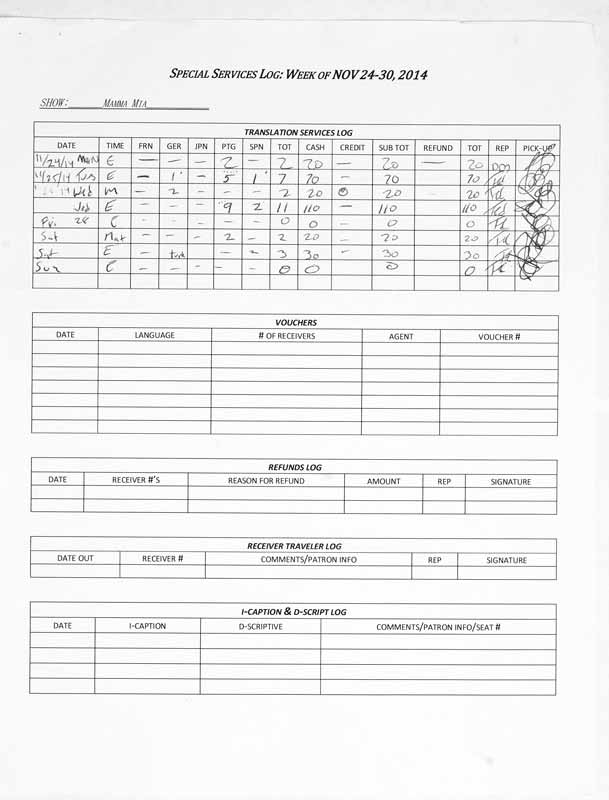 SPECIAL SERVICES LOG: WEEK OF NOV 24-30, 2014
SHOW: MAMMA MIA
TRANSLATION SERVICES LOG
DATE TIME FRN GER JPN PTG SPN TOT CASH CREDIT SUB TOT REFUND TOT REP PICK-UP
11/24/14 MON E — — — 2 — 2 20 — 20 — 20
11/25/14 TUES E — 1 — 5 1 7 70 — 70 70 Td
Wed M — 2 — — — 2 20 20 20 Td
E — — — 9 2 11 110 — 110 110 Td
Fri. 28 C — — — — — 0 0 — 0 0 Td
Sat Mat — — — 2 — 2 20 — 20 20 Td
Sat E — — — 3 30 — 30 30 Td
Sun C — — — — — 0 0 0 0 Td
VOUCHERS
DATE LANGUAGE # OF RECEIVERS AGENT VOUCHER #
REFUNDS LOG
DATE RECEIVER #'S REASON FOR REFUND AMOUNT REP SIGNATURE
RECEIVER TRAVELER LOG
DATE OUT RECEIVER # COMMENTS/PATRON INFO REP SIGNATURE
I-CAPTION & D-SCRIPT LOG
DATE I-CAPTION D-SCRIPTIVE COMMENTS/PATRON INFO/SEAT #